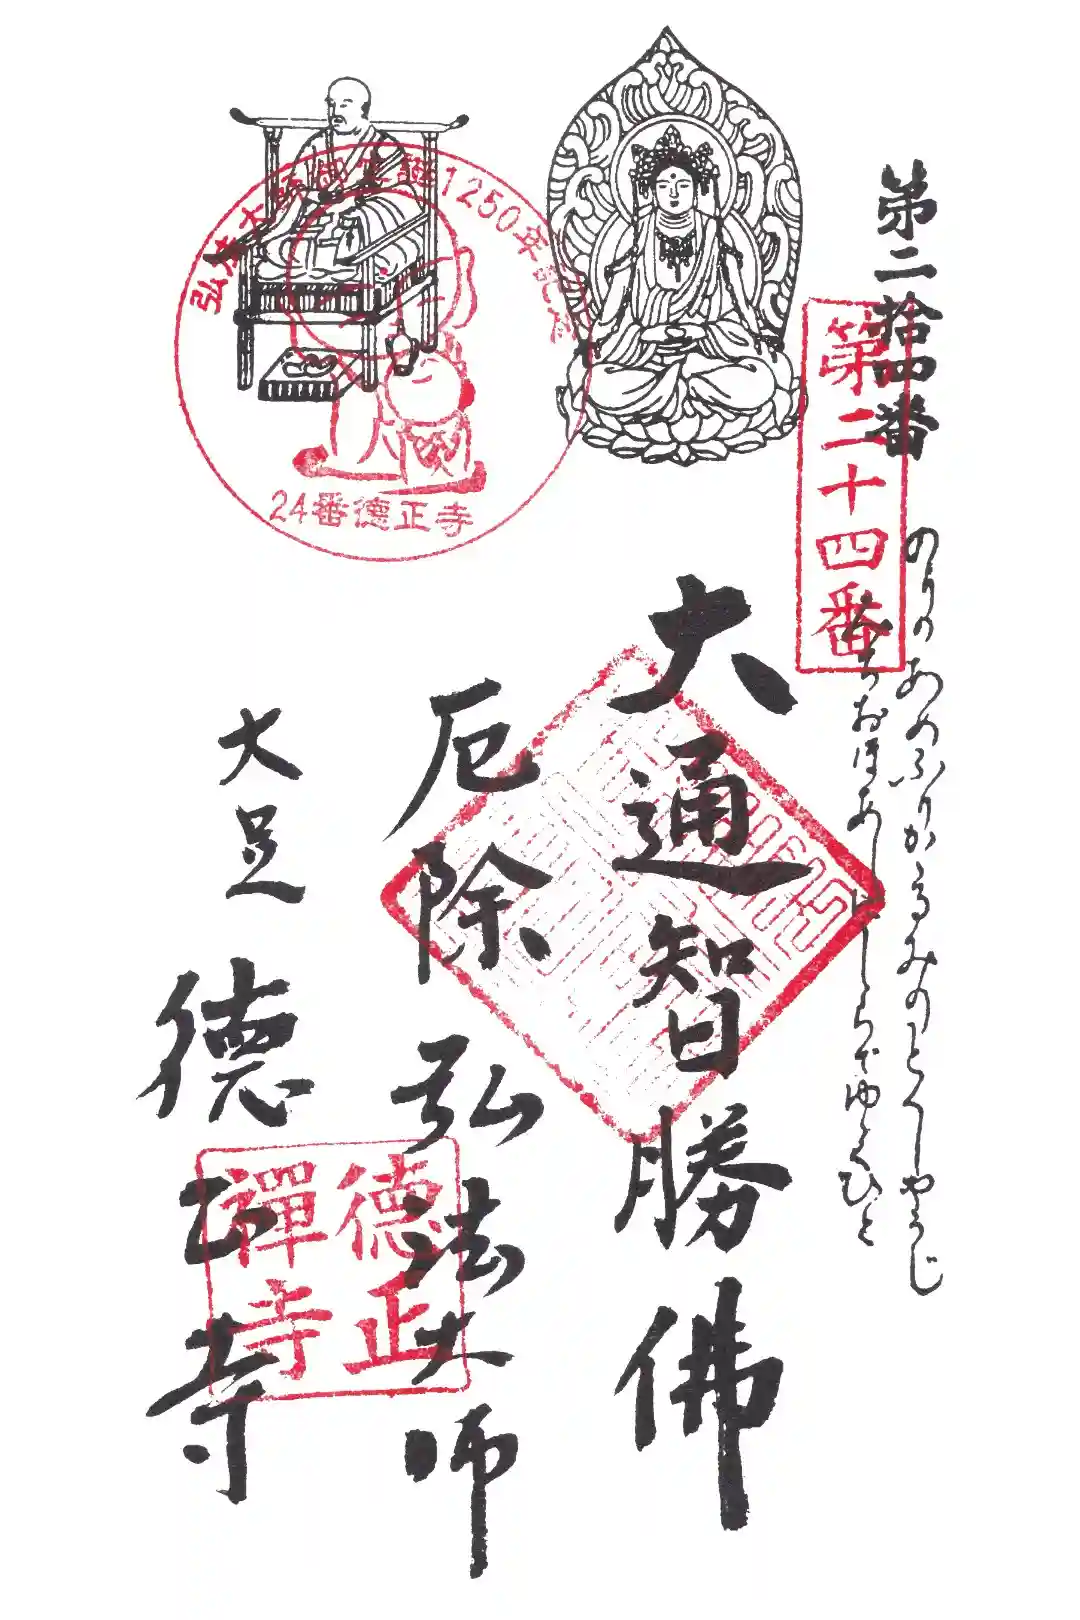 第二拾四番
第二十四番
のりのあめふりかゝるみのとくしやうじ
大通智勝佛
厄除弘法大師
大足
德正寺
弘法大師御生誕1250年記念
24番徳正寺
德正
禪寺